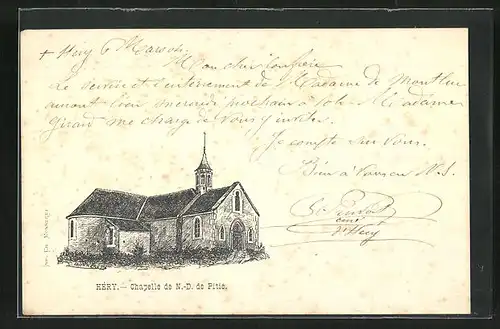 + Héry 6 Mars
Mon cher confrère
Le service et l'enterrement de Madame de Montluc
auront lieu mercredi prochain à 10h. Madame
Girard me charge de vous y inviter.
Je compte sur vous.
Bien à vous en N.S.
curé
d'Héry
HÉRY. — Chapelle de N.-D. de Pitié.